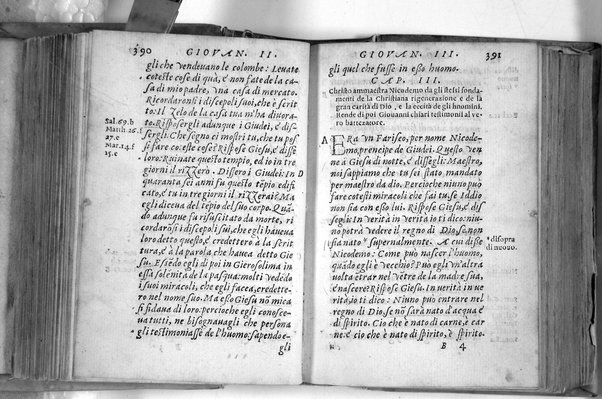 390 GIOVAN. II.
gli che vendeuano le colombe: Leuate
coteste cose di quà, è non fate de la ca-
sa di mio padre, vna casa di mercato.
Ricordaronsi i discepoli suoi, che è scrit
to: Il zelo de la casa tua m'ha diuora-
Sal. 69.b
to. Risposer gli adunque i Giudei, è dis-
Matth. 26.f
sergli: Che segno ci mostri tu, che tu pos
27.e
si fare coteste cose? Rispose Giesù, è disse
Mar. 14.f
loro: Ruinate questo tempio, ed io in tre
15.c
giorni il rizzerò. Dissero i Giudei: In D
quaranta sei anni su questo tēpio edifi-
cato, è tu in tre giorni il rizzerai? Ma
egli diceua del tēpio del suo corpo. Quā
do adunque fu risuscitato da morte, ri
cordarōsi i discepoli sui, che gli haueua
loro detto questo, è credettero à la scrit
tura, è à la parola che haueua detto Gie
sù. Essēdo egli di poi in Gierosolima in
essa solēnità de la pasqua: molti vedēdo
i suoi miracoli, che egli facea, credette-
ro nel nome suo. Ma esso Giesù nō mica
si fidaua di loro: percioche egli conosce-
ua tutti, ne bisognaua gli che persona
gli testimoniasse de l'huomo: sapendo e-
gli
GIOVAN. III. 391
gli quel che fusse in esso huomo.
CAP. III.
Christo ammaestra Nicodemo da gli stessi fonda-
menti de la Christiana rigeneratione è de la
gran carità di Dio, è la cecità de gli huomini.
Rende di poi Giouanni chiari testimonii al ve-
ro battezatore.
A ERa vn Fariseo, per nome Nicode-
mo, prencipe de Giudei. Questo ven
ne à Giesù di notte, è dissegli: Maestro,
noi sappiamo che tu sei stato mandato
per maestro da dio. Percioche niuno può
fare cotesti miracoli che fai tu, se Iddio
non sia con esso lui. Rispose Giesù, è dis
segli: In verità in verità io ti dico: niu-
no potrà vedere il regno di Dio, se non
sia nato * supernalmente. A cui disse
* disopra
Nicodemo: Come può nascer l'huomo,
di nouo.
quādo egli è vecchio? Può egli vn'altra
uolta entrar nel vētre de la madre sua,
è nascere? Rispose Giesù: In uerità in ue
rità, io ti dico: Niuno può entrar nel
regno di Dio, se nō sarà nato d'acqua è
di spirito. Ciò che è nato di carne, è car
ne: è ciò che è nato di spirito, è spirito.
B 4